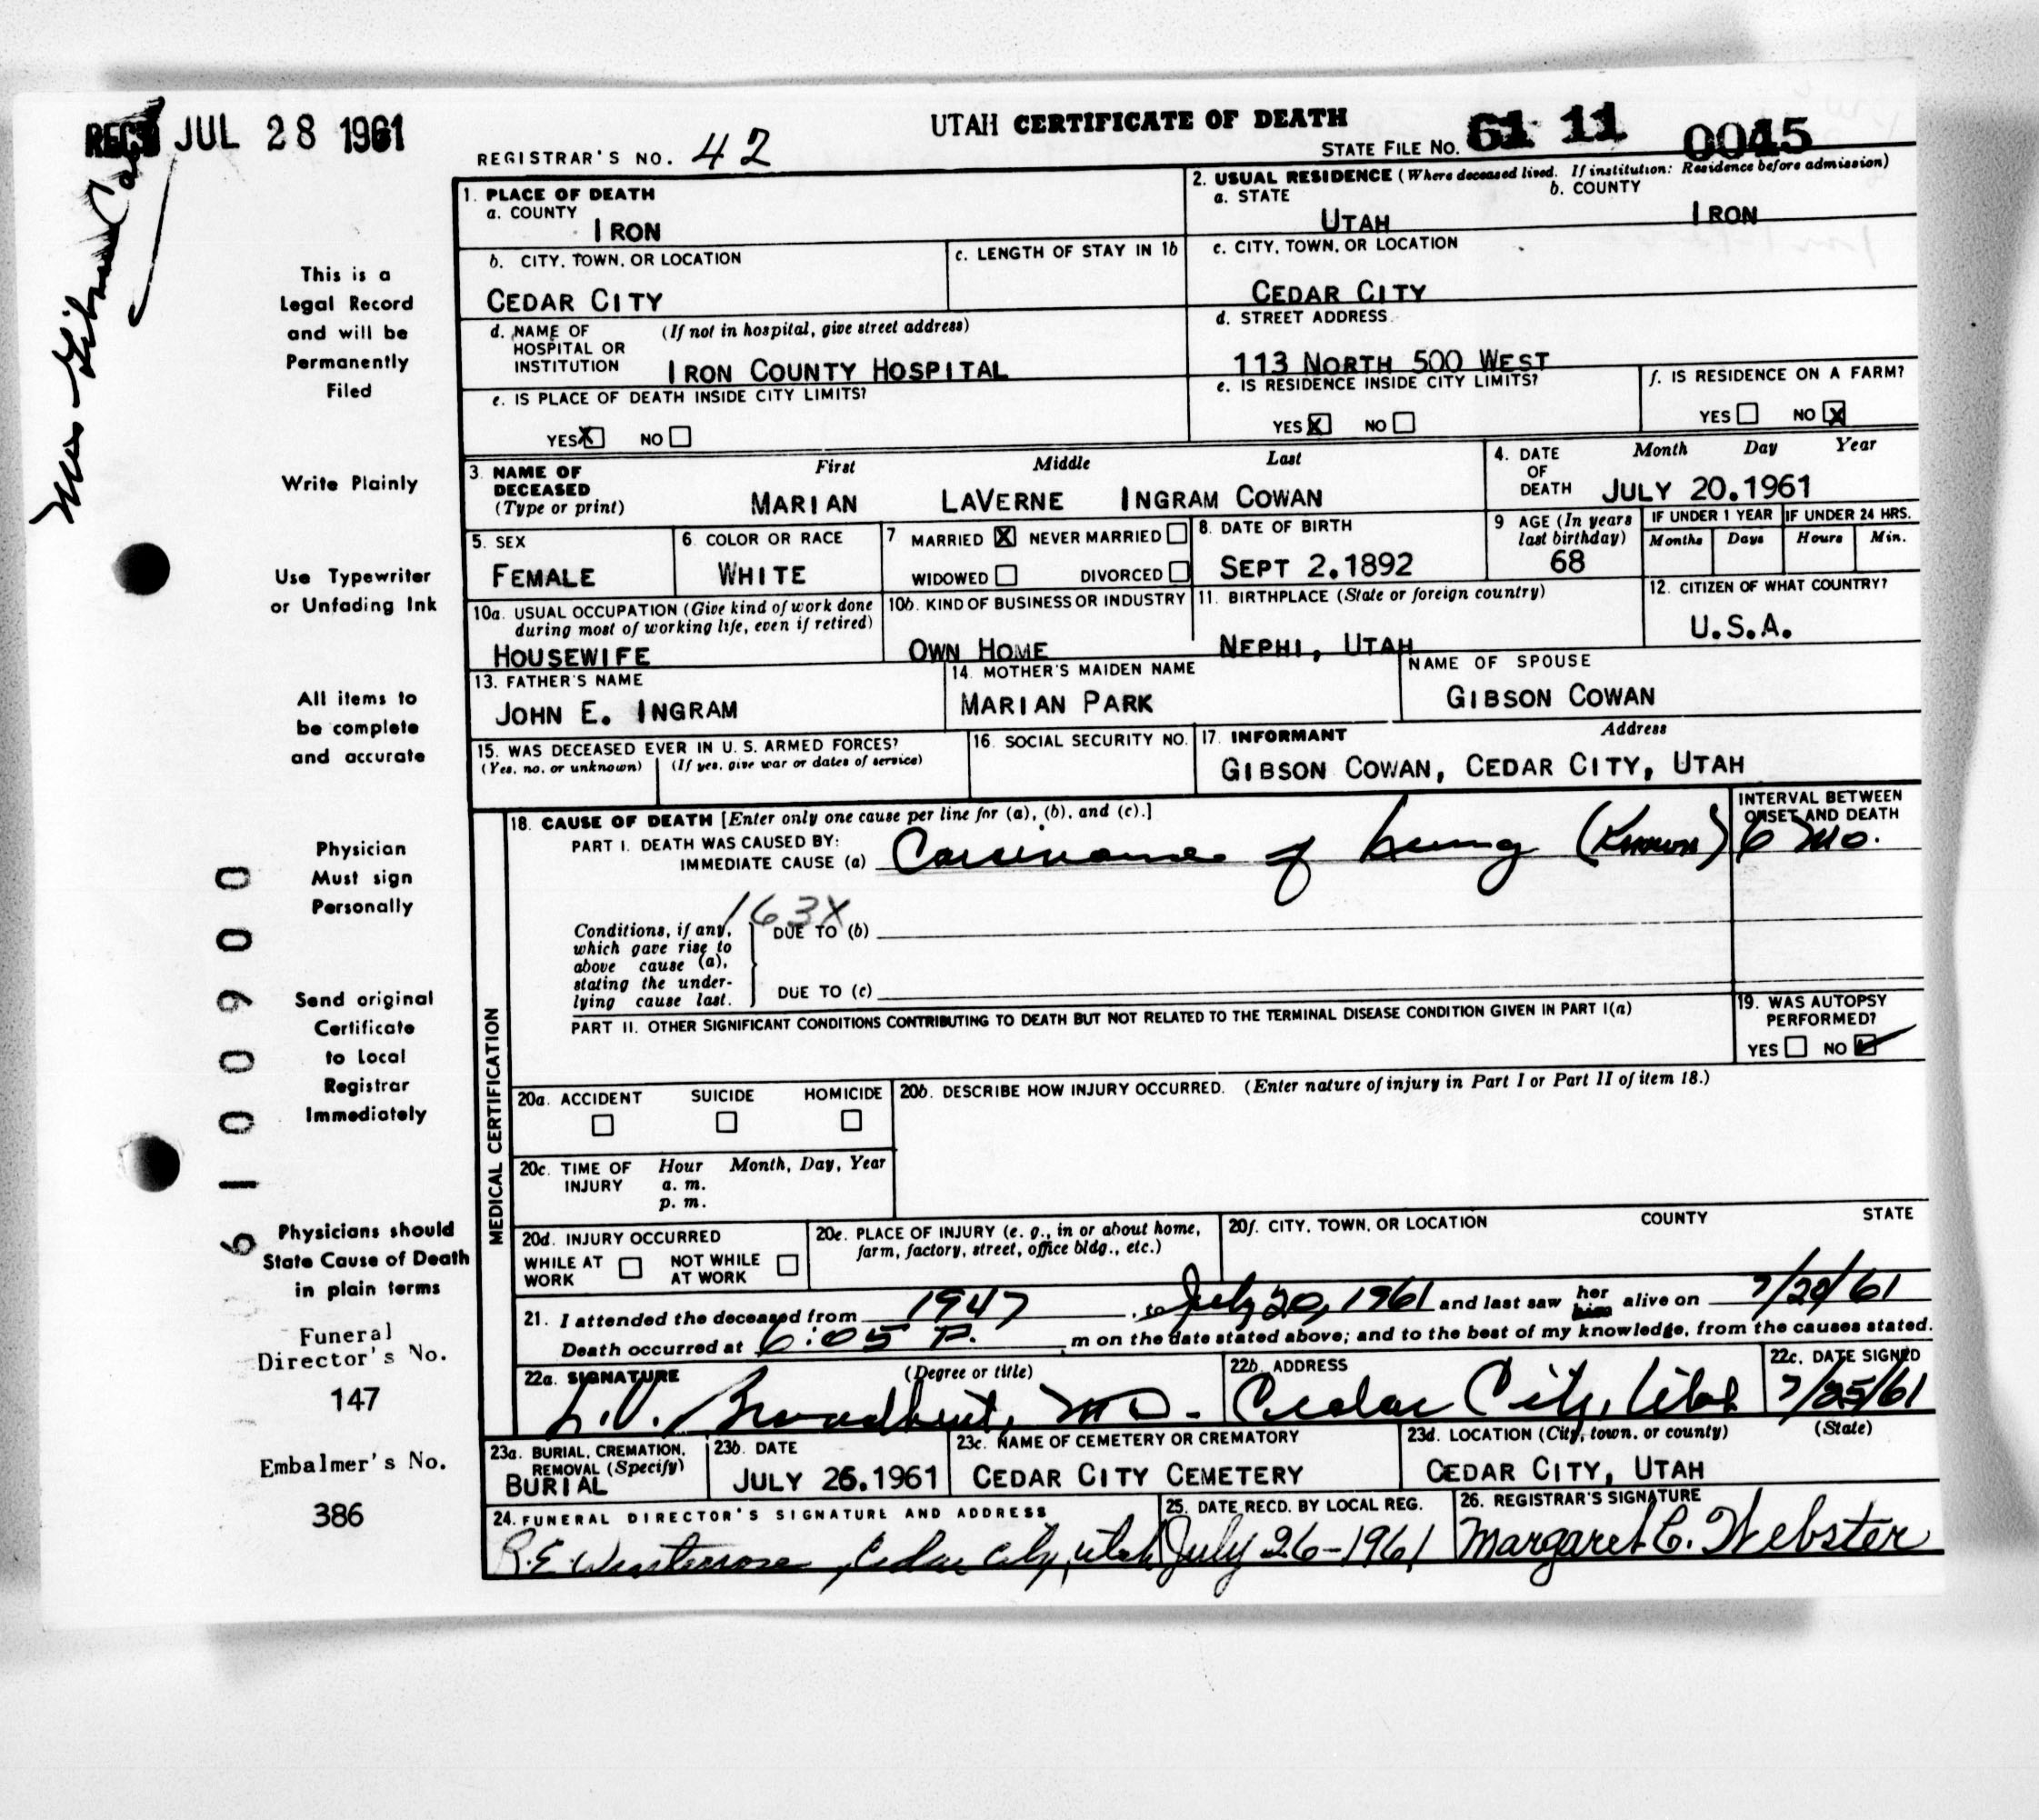 REC'D JUL 28 1961
UTAH CERTIFICATE OF DEATH
REGISTRAR'S NO. 42
STATE FILE NO. 61 11 0045
Mrs Gibson
This is a
Legal Record
and will be
Permanently
Filed
Write Plainly
Use Typewriter
or Unfading Ink
All items to
be complete
and accurate
Physician
Must sign
Personally
Send original
Certificate
to Local
Registrar
Immediately
Physicians should
State Cause of Death
in plain terms
Funeral
Director's No.
147
Embalmer's No.
386
61009000
1. PLACE OF DEATH
a. COUNTY
IRON
2. USUAL RESIDENCE (Where deceased lived. If institution: Residence before admission)
a. STATE
UTAH
b. COUNTY
IRON
b. CITY, TOWN, OR LOCATION
CEDAR CITY
c. LENGTH OF STAY IN 1b
c. CITY, TOWN, OR LOCATION
CEDAR CITY
d. NAME OF (If not in hospital, give street address)
HOSPITAL OR
INSTITUTION IRON COUNTY HOSPITAL
d. STREET ADDRESS
113 NORTH 500 WEST
e. IS PLACE OF DEATH INSIDE CITY LIMITS?
YES X NO
e. IS RESIDENCE INSIDE CITY LIMITS?
YES X NO
f. IS RESIDENCE ON A FARM?
YES NO X
3. NAME OF
DECEASED
(Type or print)
First Middle Last
MARIAN LAVERNE INGRAM COWAN
4. DATE
OF
DEATH
Month Day Year
JULY 20.1961
5. SEX
FEMALE
6. COLOR OR RACE
WHITE
7 MARRIED X NEVER MARRIED
WIDOWED DIVORCED
8. DATE OF BIRTH
SEPT 2.1892
9 AGE (In years
last birthday)
68
IF UNDER 1 YEAR
Months Days
IF UNDER 24 HRS.
Hours Min.
10a. USUAL OCCUPATION (Give kind of work done
during most of working life, even if retired)
HOUSEWIFE
10b. KIND OF BUSINESS OR INDUSTRY
OWN HOME
11. BIRTHPLACE (State or foreign country)
NEPHI, UTAH
12. CITIZEN OF WHAT COUNTRY?
U.S.A.
13. FATHER'S NAME
JOHN E. INGRAM
14. MOTHER'S MAIDEN NAME
MARIAN PARK
NAME OF SPOUSE
GIBSON COWAN
15. WAS DECEASED EVER IN U. S. ARMED FORCES?
(Yes, no, or unknown) (If yes, give war or dates of service)
16. SOCIAL SECURITY NO.
17. INFORMANT Address
GIBSON COWAN, CEDAR CITY, UTAH
MEDICAL CERTIFICATION
18. CAUSE OF DEATH [Enter only one cause per line for (a), (b), and (c).]
PART I. DEATH WAS CAUSED BY:
IMMEDIATE CAUSE (a) Carcinoma of Lung (Known)
INTERVAL BETWEEN
ONSET AND DEATH
6 mo.
163X
Conditions, if any,
which gave rise to
above cause (a),
stating the under-
lying cause last.
DUE TO (b)
DUE TO (c)
PART II. OTHER SIGNIFICANT CONDITIONS CONTRIBUTING TO DEATH BUT NOT RELATED TO THE TERMINAL DISEASE CONDITION GIVEN IN PART I(a)
19. WAS AUTOPSY
PERFORMED?
YES NO ✓
20a. ACCIDENT SUICIDE HOMICIDE
20b. DESCRIBE HOW INJURY OCCURRED. (Enter nature of injury in Part I or Part II of item 18.)
20c. TIME OF Hour Month, Day, Year
INJURY a. m.
p. m.
20d. INJURY OCCURRED
WHILE AT NOT WHILE
WORK AT WORK
20e. PLACE OF INJURY (e. g., in or about home,
farm, factory, street, office bldg., etc.)
20f. CITY, TOWN, OR LOCATION COUNTY STATE
21. I attended the deceased from 1947, to July 20, 1961 and last saw her him alive on 7/20/61
Death occurred at 6:05 P. m on the date stated above; and to the best of my knowledge, from the causes stated.
22a. SIGNATURE (Degree or title)
L.V. Broadbent, MD.
22b. ADDRESS
Cedar City, Utah
22c. DATE SIGNED
7/25/61
23a. BURIAL, CREMATION,
REMOVAL (Specify)
BURIAL
23b. DATE
JULY 26.1961
23c. NAME OF CEMETERY OR CREMATORY
CEDAR CITY CEMETERY
23d. LOCATION (City, town, or county) (State)
CEDAR CITY, UTAH
24. FUNERAL DIRECTOR'S SIGNATURE AND ADDRESS
R.E. Cedar City, Utah
25. DATE RECD. BY LOCAL REG.
July 26-1961
26. REGISTRAR'S SIGNATURE
Margaret C. Webster